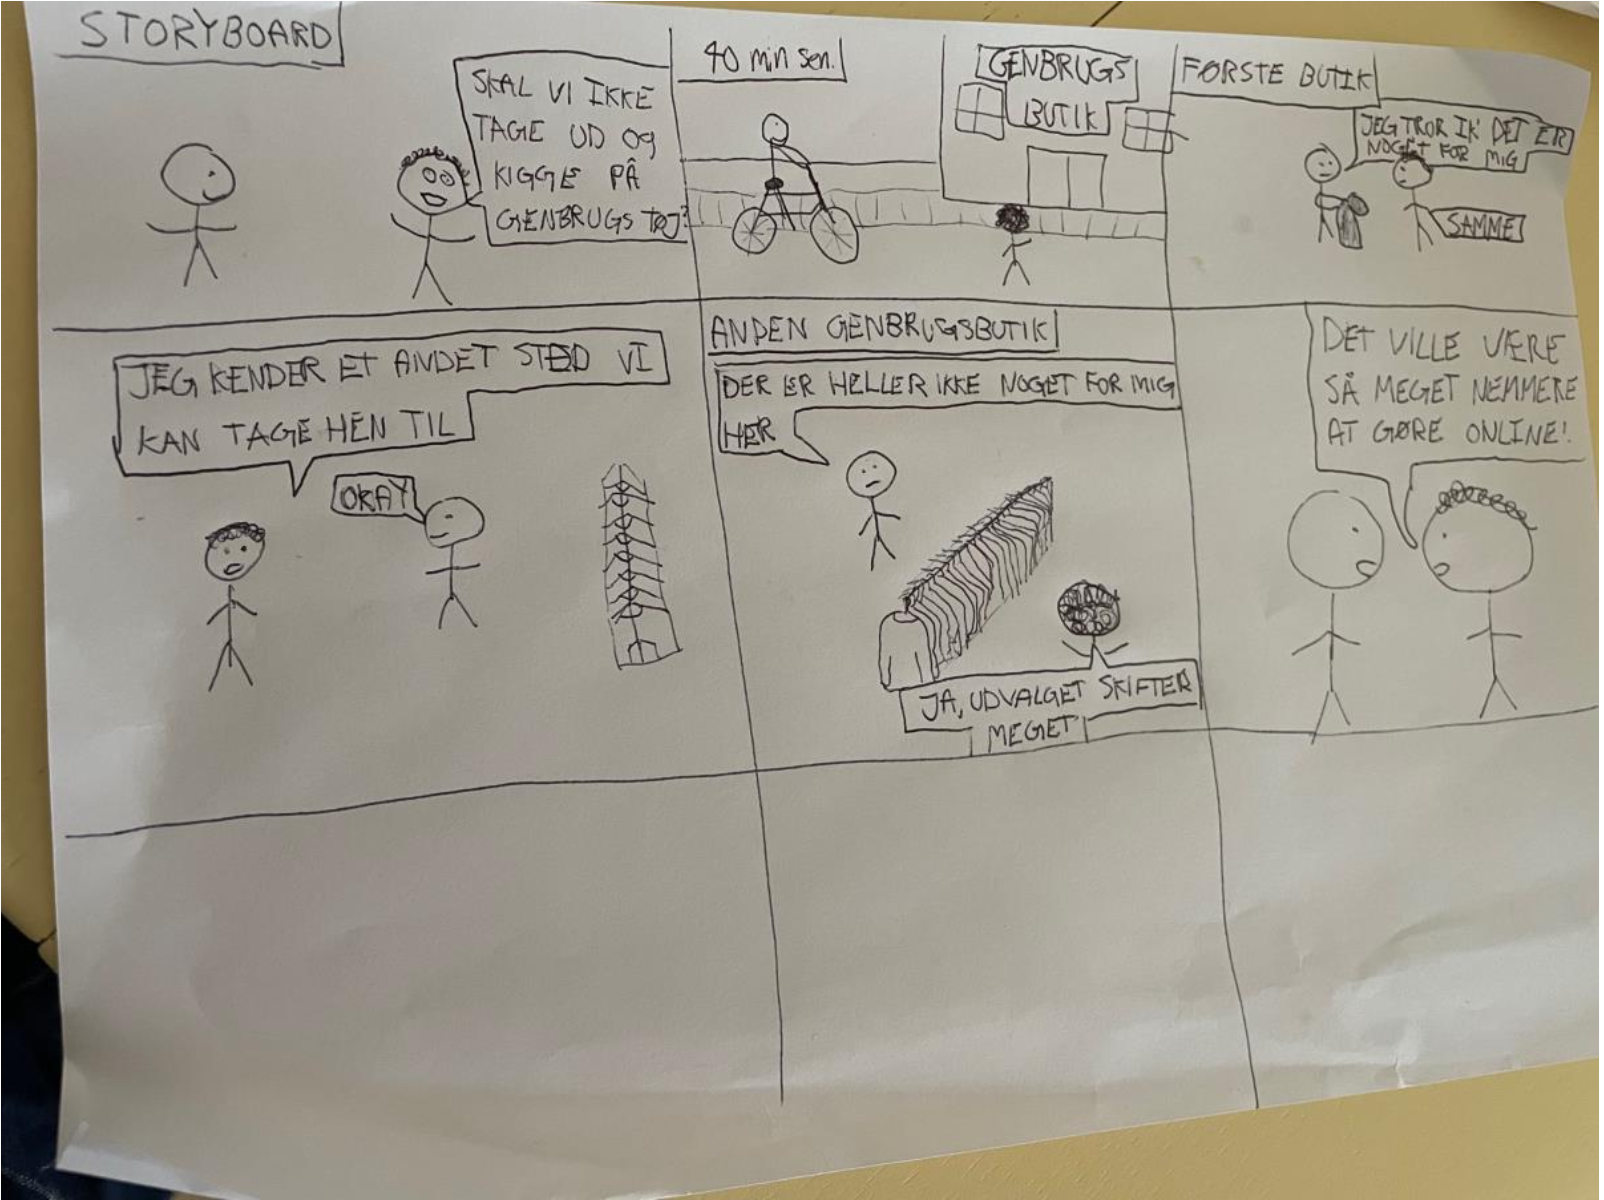 STORYBOARD
SKAL VI IKKE
TAGE UD OG
KIGGE PÅ
GENBRUGS TØJ?
40 min sen.
GENBRUGS
BUTIK
FØRSTE BUTIK
JEG TROR IK' DET ER
NOGET FOR MIG
SAMME
JEG KENDER ET ANDET STED VI
KAN TAGE HEN TIL
OKAY
ANDEN GENBRUGSBUTIK
DER ER HELLER IKKE NOGET FOR MIG
HER
JA, UDVALGET SKIFTER
MEGET
DET VILLE VÆRE
SÅ MEGET NEMMERE
AT GØRE ONLINE!